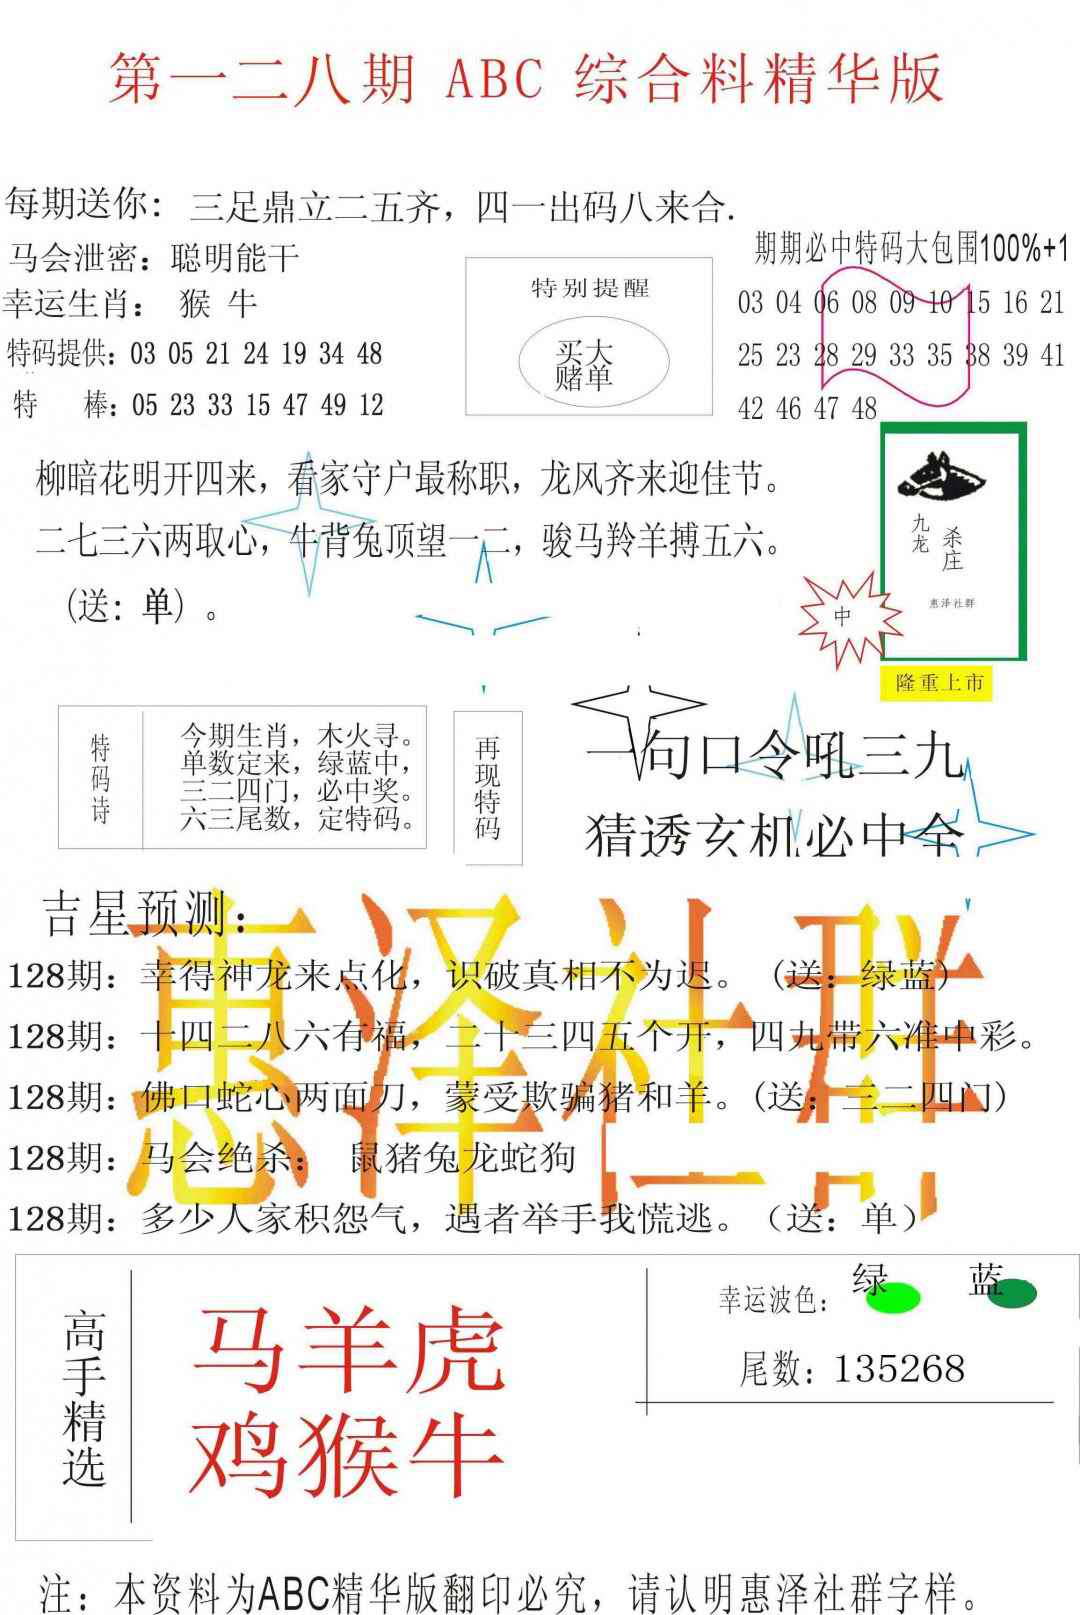 第一二八期 ABC 综合料精华版
每期送你：三足鼎立二五齐，四一出码八来合.
马会泄密：聪明能干
幸运生肖： 猴 牛
特码提供：03 05 21 24 19 34 48
特 棒：05 23 33 15 47 49 12
特别提醒
买大
赌单
期期必中特码大包围100%+1
03 04 06 08 09 10 15 16 21
25 23 28 29 33 35 38 39 41
42 46 47 48
柳暗花明开四来，看家守户最称职，龙风齐来迎佳节。
二七三六两取心，牛背兔顶望一二，骏马羚羊搏五六。
（送：单）。
九龙
杀庄
惠泽社群
中
隆重上市
特码诗
今期生肖，木火寻。
单数定来，绿蓝中，
三二四门，必中奖。
六三尾数，定特码。
再现特码
一句口令吼三九
猜透玄机必中全
吉星预测：
惠泽社群
128期：幸得神龙来点化，识破真相不为迟。（送：绿蓝）
128期：十四二八六有福，二十三四五个开，四九带六准中彩。
128期：佛口蛇心两面刀，蒙受欺骗猪和羊。(送：三二四门)
128期：马会绝杀： 鼠猪兔龙蛇狗
128期：多少人家积怨气，遇者举手我慌逃。（送：单）
高手精选
马羊虎
鸡猴牛
幸运波色： 绿 蓝
尾数：135268
注：本资料为ABC精华版翻印必究，请认明惠泽社群字样。